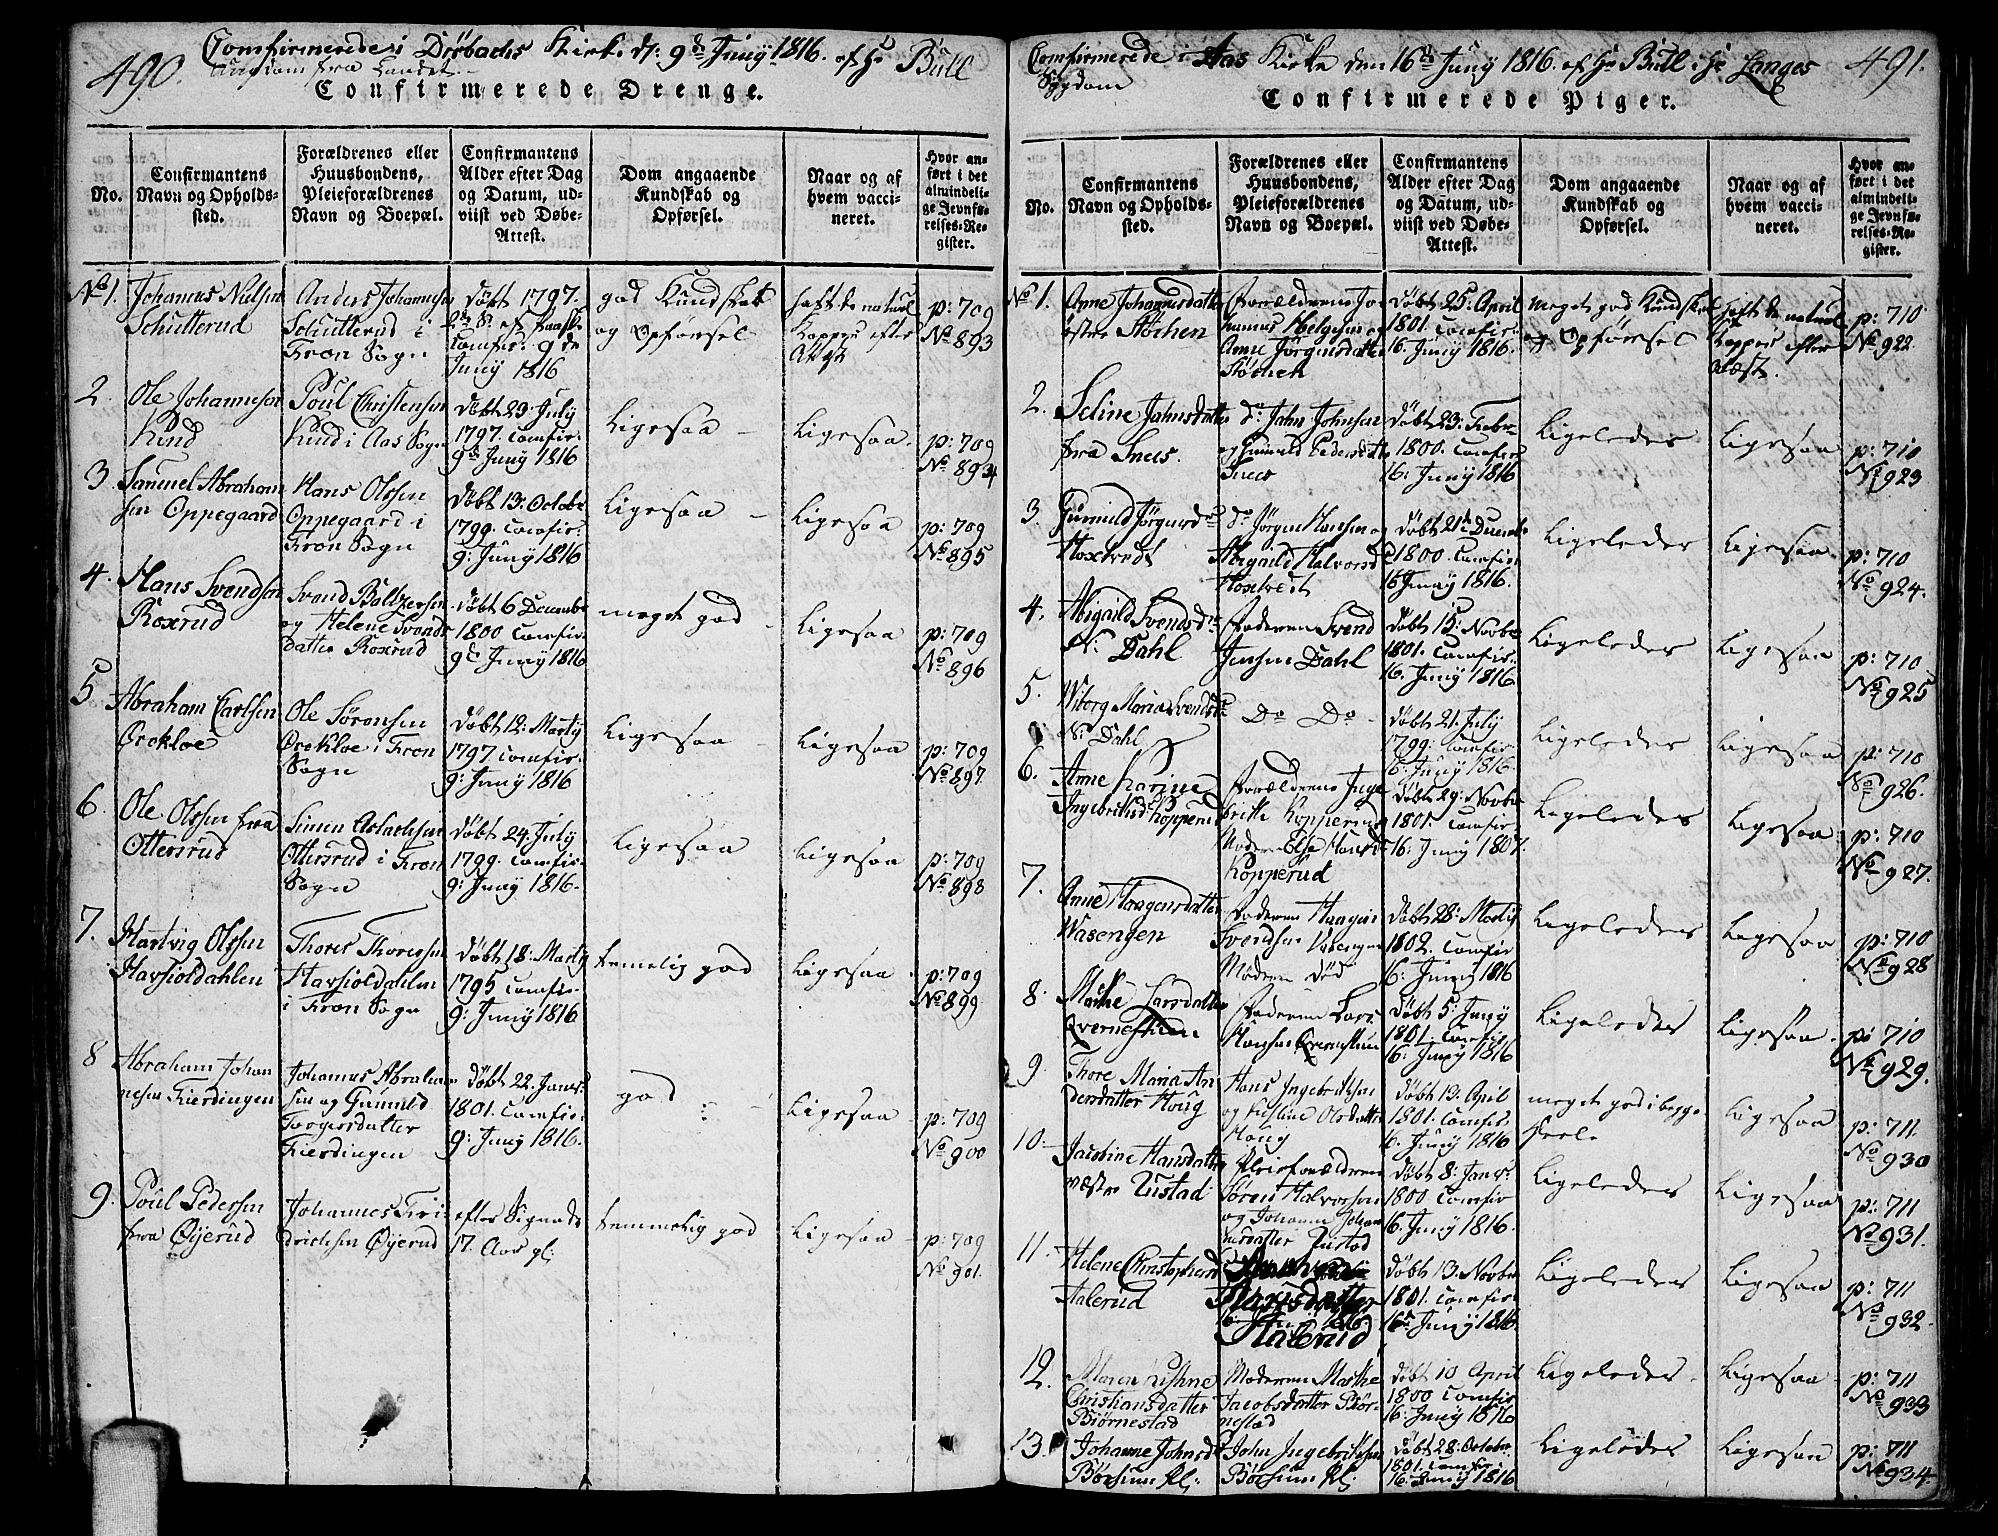 490.
Confirmerede i Drøbachs Kirke d: 9de Juny 1816. af Hr Bull
Ungdom fra Landet.
Confirmerede Drenge.
No.
Confirmantens
Navn og Opholds-
sted.
Forældrenes eller
Huusbondens,
Pleieforældrenes
Navn og Boepæl.
Confirmantens
Alder efter Dag
og Datum, ud-
viist ved Døbe-
Attest.
Dom angaaende
Kundskab og
Opførsel.
Naar og af
hvem vacci-
neret.
Hvor an-
ført i det
almindeli-
ge Jevnfø-
relses-Re-
gister.
No 1.
Johannes Nielsen
Schutterud
Anders Johannesen
Schutterud i
Fron Sogn
Døbt 1797.
Confir: 9de
Juny 1816
god Kundskab
og Opførsel
haft de naturl
Kopper efter
Attest
p: 709
No 893
2.
Ole Johannesen
Hund
Poul Christensen
Hund i Aas Sogn
Døbt 23. July
1797. Comfir:
9de Juny 1816
Ligesaa
Ligesaa.
p: 709
No 894
3.
Samuel Abraham
sen Oppegaard
Hans Olssen
Oppegaard i
Fron Sogn
Døbt 13. Octobr
1799. Comfir:
9: Juny 1816
Ligesaa
Ligesaa
p: 709
No 895
4.
Hans Svendsen
Roxrud
Svend Baltzersen
og Helene Svends
datter Roxrud
Døbt 6 Decembr
1800 Comfir:
9de Juny 1816
meget god
Ligesaa
p: 709
No 896
5
Abraham Carlsen
Ørekloe
Ole Sørensen
Ørekloe i Fron
Sogn
Døbt 12. Marty
1797. Comfir.
9: Juny 1816
Ligesaa
Ligesaa
p: 709
No 897.
6.
Ole Olssen fra
Ottersrud
Simen Aslachsen
Ottersrud i Fron
Sogn
Døbt 24. July
1799. Comfir-
9: Juny 1816.
Ligesaa
Ligesaa
p: 709
No 898
7.
Hartvig Olssen
Harsioldahlen
Thores Thoressen
Harsioldahlen
i Fron Sogn
Døbt 18. Marty
1795 Comfir-
9: Juny 1816
temelig god
Ligesaa
p: 709
No 899.
8
Abraham Johan
nesen Fierdingen
Johannes Abraham
sen og Gunnild
Torgersdatter
Fierdingen
Døbt 22. Janr:
1801. Comfir-
9: Juny 1816.
god
Ligesaa
p: 709
No 900
9.
Poul Pedersen
fra Øÿerud
Johannes Fri
drichsen Øÿerud
efter Sigende
17. Aar gl:
temmelig god
Ligesaa
p: 709
No 901.
491.
Confirmerede i Aas Kirke den 16de Juny 1816. af Hr Bull i Hr Langes
Sygdom
Confirmerede Piger.
No.
Confirmantens
Navn og Opholds-
sted.
Forældrenes eller
Huusbondens,
Pleieforældrenes
Navn og Boepæl.
Confirmantens
Alder efter Dag
og Datum, ud-
viist ved Døbe-
Attest.
Dom angaaende
Kundskab og
Opførsel.
Naar og af
hvem vacci-
neret.
Hvor an-
ført i det
almindeli-
ge Jevnfø-
relses-Re-
gister.
No 1.
Anne Johannesdatter
østre Støchen
Forældrene Jo
hannes Helgesen og
Anne Jørgensdatter
Støchen
Døbt 25. April
1801. Comfir:
16. Juny 1816.
meget god Kundskab
og Opførsel
haft de naturl
Kopper efter
Attest.
p: 710
No 922
2.
Seline Jahnsdatter
fra Snees.
Do Jahn Johnsen
og Gunnild Pedersdatter
Snees
Døbt 23. Febr
1800. Comfir
16: Juny 1816
Ligeledes
Ligesaa
p: 710
No 923
3.
Gunnild Jørgensdr
Hoxtvedt
Do Jørgen Hansen og
Abigaild Halvorsd
Hoxtvedt
Døbt 21de Decembr
1800. Comfir:
16 Juny 1816.
Ligeledes
Ligesaa
p: 710
No 924.
4.
Abigaild Svendsdr
N: Dahl
Faderen Svend
Jensen Dahl
Døbt 15: Novbr
1801. Comfir:
16. Juny 1816.
Ligeledes
Ligesaa
p: 710
No 925
5.
Wiborg Maria Svendsdr
N: Dahl
Do Do
Døbt 21. July
1799. Comfir-
16. Juny 1816.
Ligeledes
Ligesaa
p: 710
No 926.
6.
Anne Karine
Ingebrithsd Kopperud
Forældrene Inge
brith Kopperud
Moderen Else Hansd
Kopperud
Døbt 29. Novbr
1801. Comfir-
16. Juny 1807.
Ligeledes
Ligesaa
p: 710
No 927.
7.
Anne Haagensdatter
Wasengen
Faderen Haagen
Svendsen Vasengen
Moderen død
Døbt 28: Marty
1802. Comfir
16: Juny 1816
Ligeledes
Ligesaa
p: 710
No 928
8.
Marthe Larsdatter
Qvernestuen
Faderen Lars
Hansen Qvernestuen
Døbt 5: Juny
1801. Comfir-
16: Juny 1816
Ligeledes
Ligesaa
p: 710
No 929.
9.
Thore Maria An
dersdatter Houg
Hans Ingebrithsen
og Kirstine Olsdatter
Houg
Døbt 13. April
1801. Comfir:
16. Juny 1816
meget god i begge
Deele
Ligesaa
p: 711.
No 930
10.
Jacobine Hansdatter
vestre Rustad
Pleieforældrene
Søren Halvorsen
og Johanne Johan
nesdatter Rustad
Døbt 8: Janr:
1800. Comfir
16: Juny 1816.
Ligeledes
Ligesaa
p: 711
No 931.
11.
Helene Christophersd
Aalerud
Hansdatter
Aalerud
Døbt 13. Novbr
1801. Comfir-
16de Juny 1816.
Ligeledes
Ligesaa
p: 711
No 932.
12.
Maren Kirstine
Christiansdatter
Biørnestad
Moderen Marthe
Jacobsdatter Biør-
nestad
Døbt 10 April
1800 Comfir
16: Juny 1816
Ligeledes
Ligesaa
p: 711
No 933
13.
Johanne Johnsdr
Børsum Kl:
John Ingebrithsen
Børsum Kl:
Døbt 28. Octobr
1801. Comfir:
16. Juny 1816
Ligeledes
Ligesaa
p: 711
No 934.